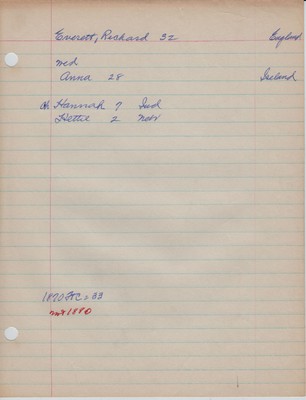 Everett, Richard 32 England
med
Anna 28 Ireland
ch Hannah 7 Ind
Hettie 2 Nebr
1870 FC = 33
not 1880